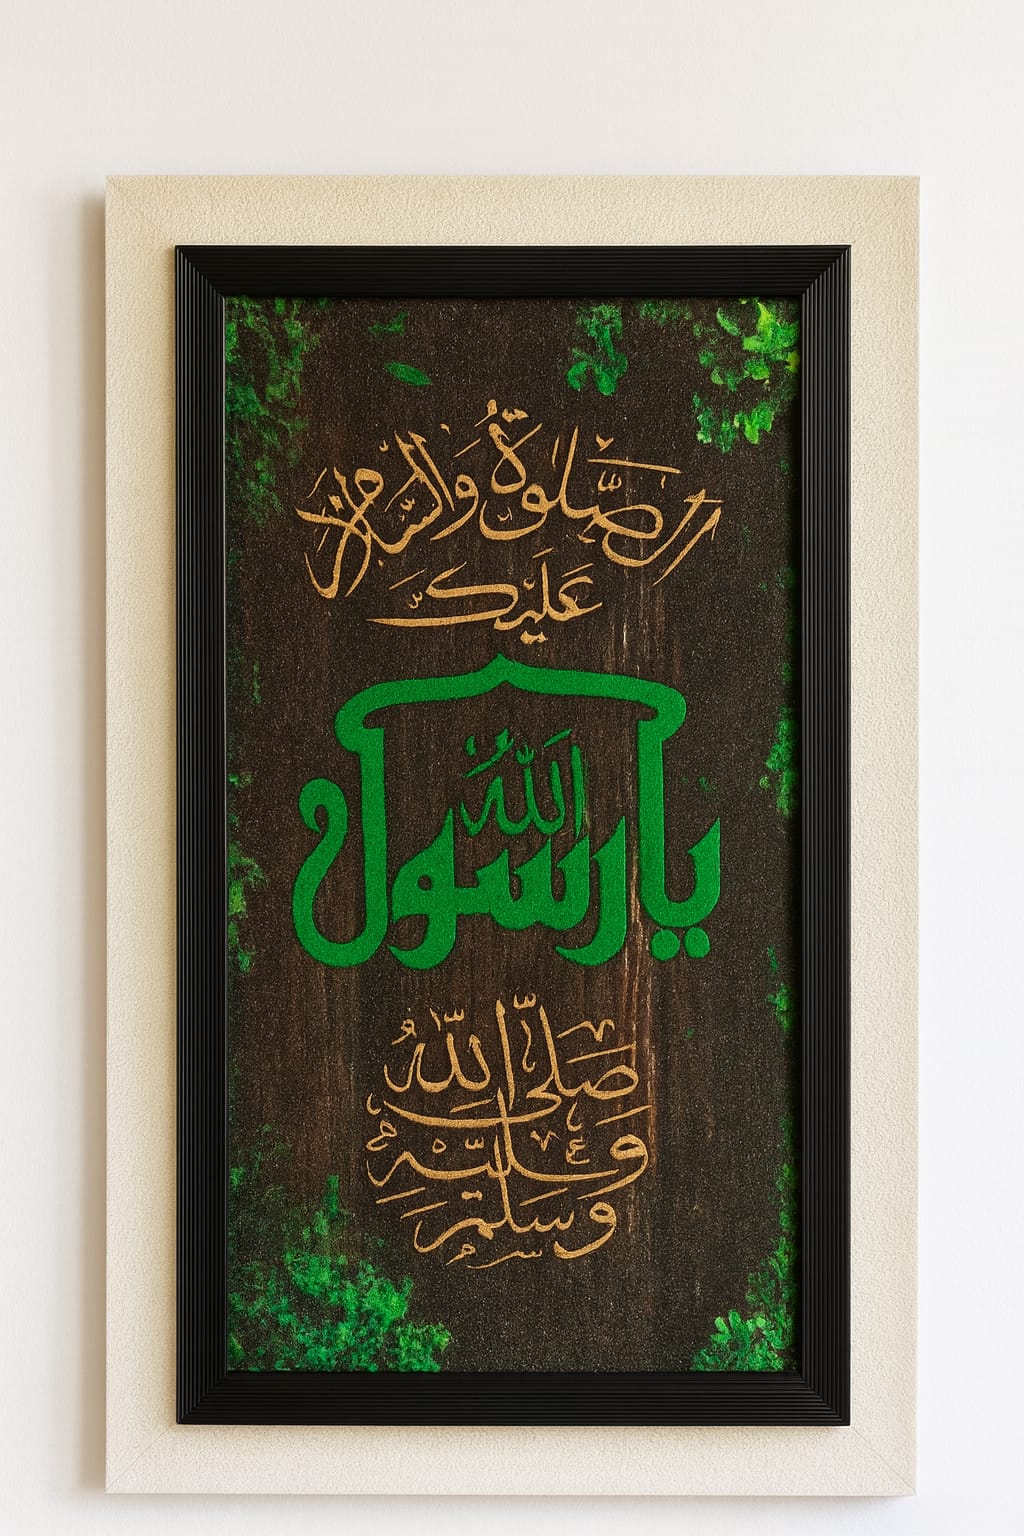 الصلوة والسلام
عليك
يا رسول الله
صلى الله
وعليه
وسلم